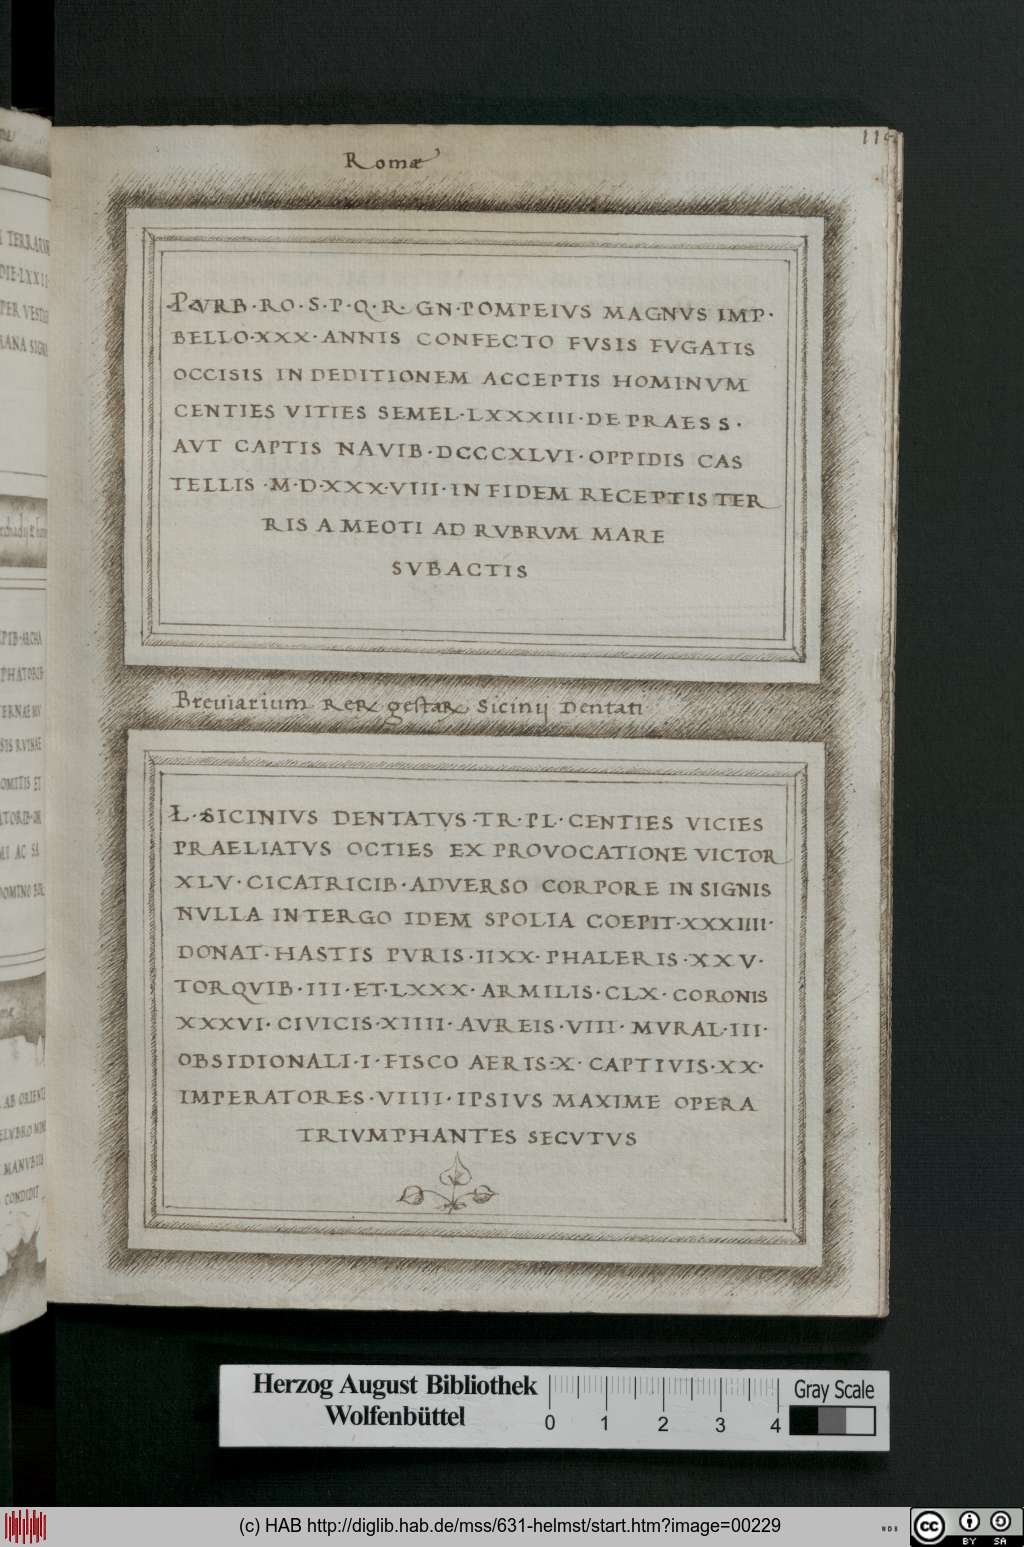 115
Romæ
PVRB·RO·S·P·Q·R· GN·POMPEIVS MAGNVS IMP·
BELLO·XXX·ANNIS CONFECTO FVSIS FVGATIS
OCCISIS IN DEDITIONEM ACCEPTIS HOMINVM
CENTIES VITIES SEMEL·LXXXIII·DEPRAESS·
AVT CAPTIS NAVIB·DCCCXLVI·OPPIDIS CAS
TELLIS·M·D·XXX·VIII·IN FIDEM RECEPTIS TER
RIS A MEOTI AD RVBRVM MARE
SVBACTIS
Breuiarium RER gestar Sicinij Dentati
L·SICINIVS DENTATVS·TR·PL·CENTIES VICIES
PRAELIATVS OCTIES EX PROVOCATIONE VICTOR
XLV·CICATRICIB·ADVERSO CORPORE IN SIGNIS
NVLLA IN TERGO IDEM SPOLIA COEPIT·XXXIIII·
DONAT·HASTIS PVRIS·IIXX·PHALERIS·XXV·
TORQVIB·III·ET·LXXX·ARMILIS·CLX·CORONIS
XXXVI·CIVICIS·XIIII·AVREIS·VIII·MVRAL·III·
OBSIDIONALI·I·FISCO AERIS·X·CAPTIVIS·XX·
IMPERATORES·VIIII·IPSIVS MAXIME OPERA
TRIVMPHANTES SECVTVS
Herzog August Bibliothek
Wolfenbüttel
0 1 2 3 4
Gray Scale
(c) HAB http://diglib.hab.de/mss/631-helmst/start.htm?image=00229
WDB
cc BY SA